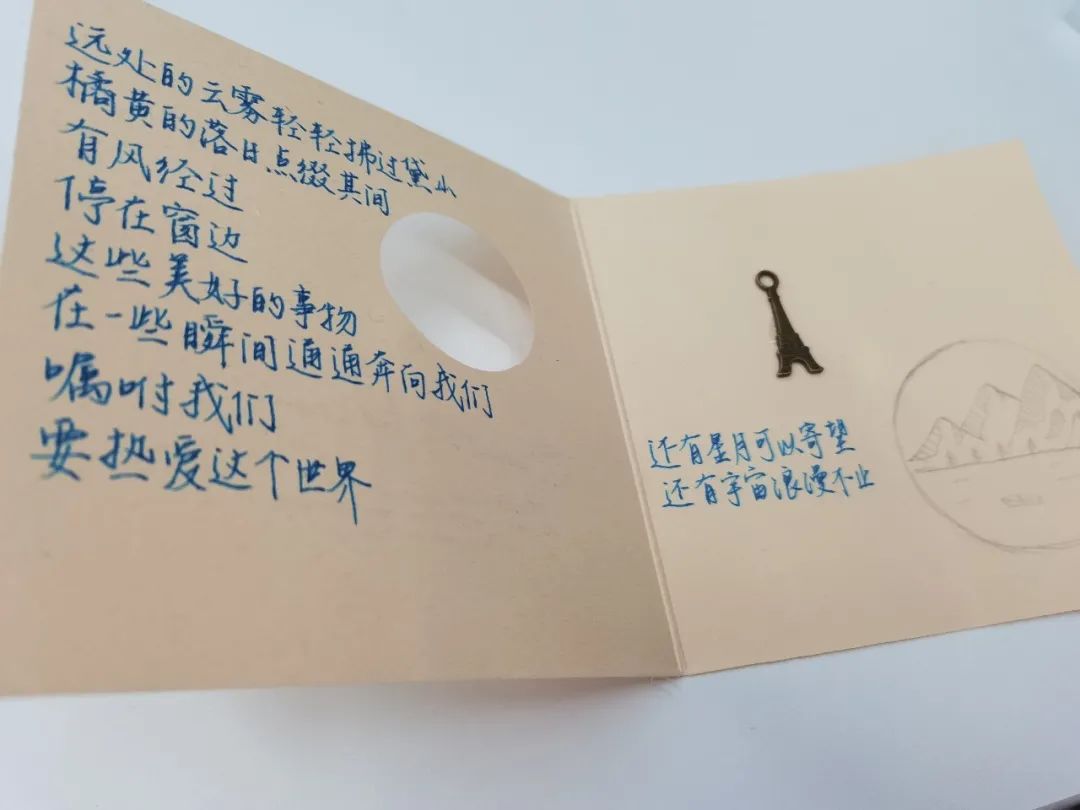 远处的云雾轻轻拂过黛山
橘黄的落日点缀其间
有风经过
停在窗边
这些美好的事物
在一些瞬间通通奔向我们
嘱咐我们
要热爱这个世界
还有星月可以寄望
还有宇宙浪漫不止